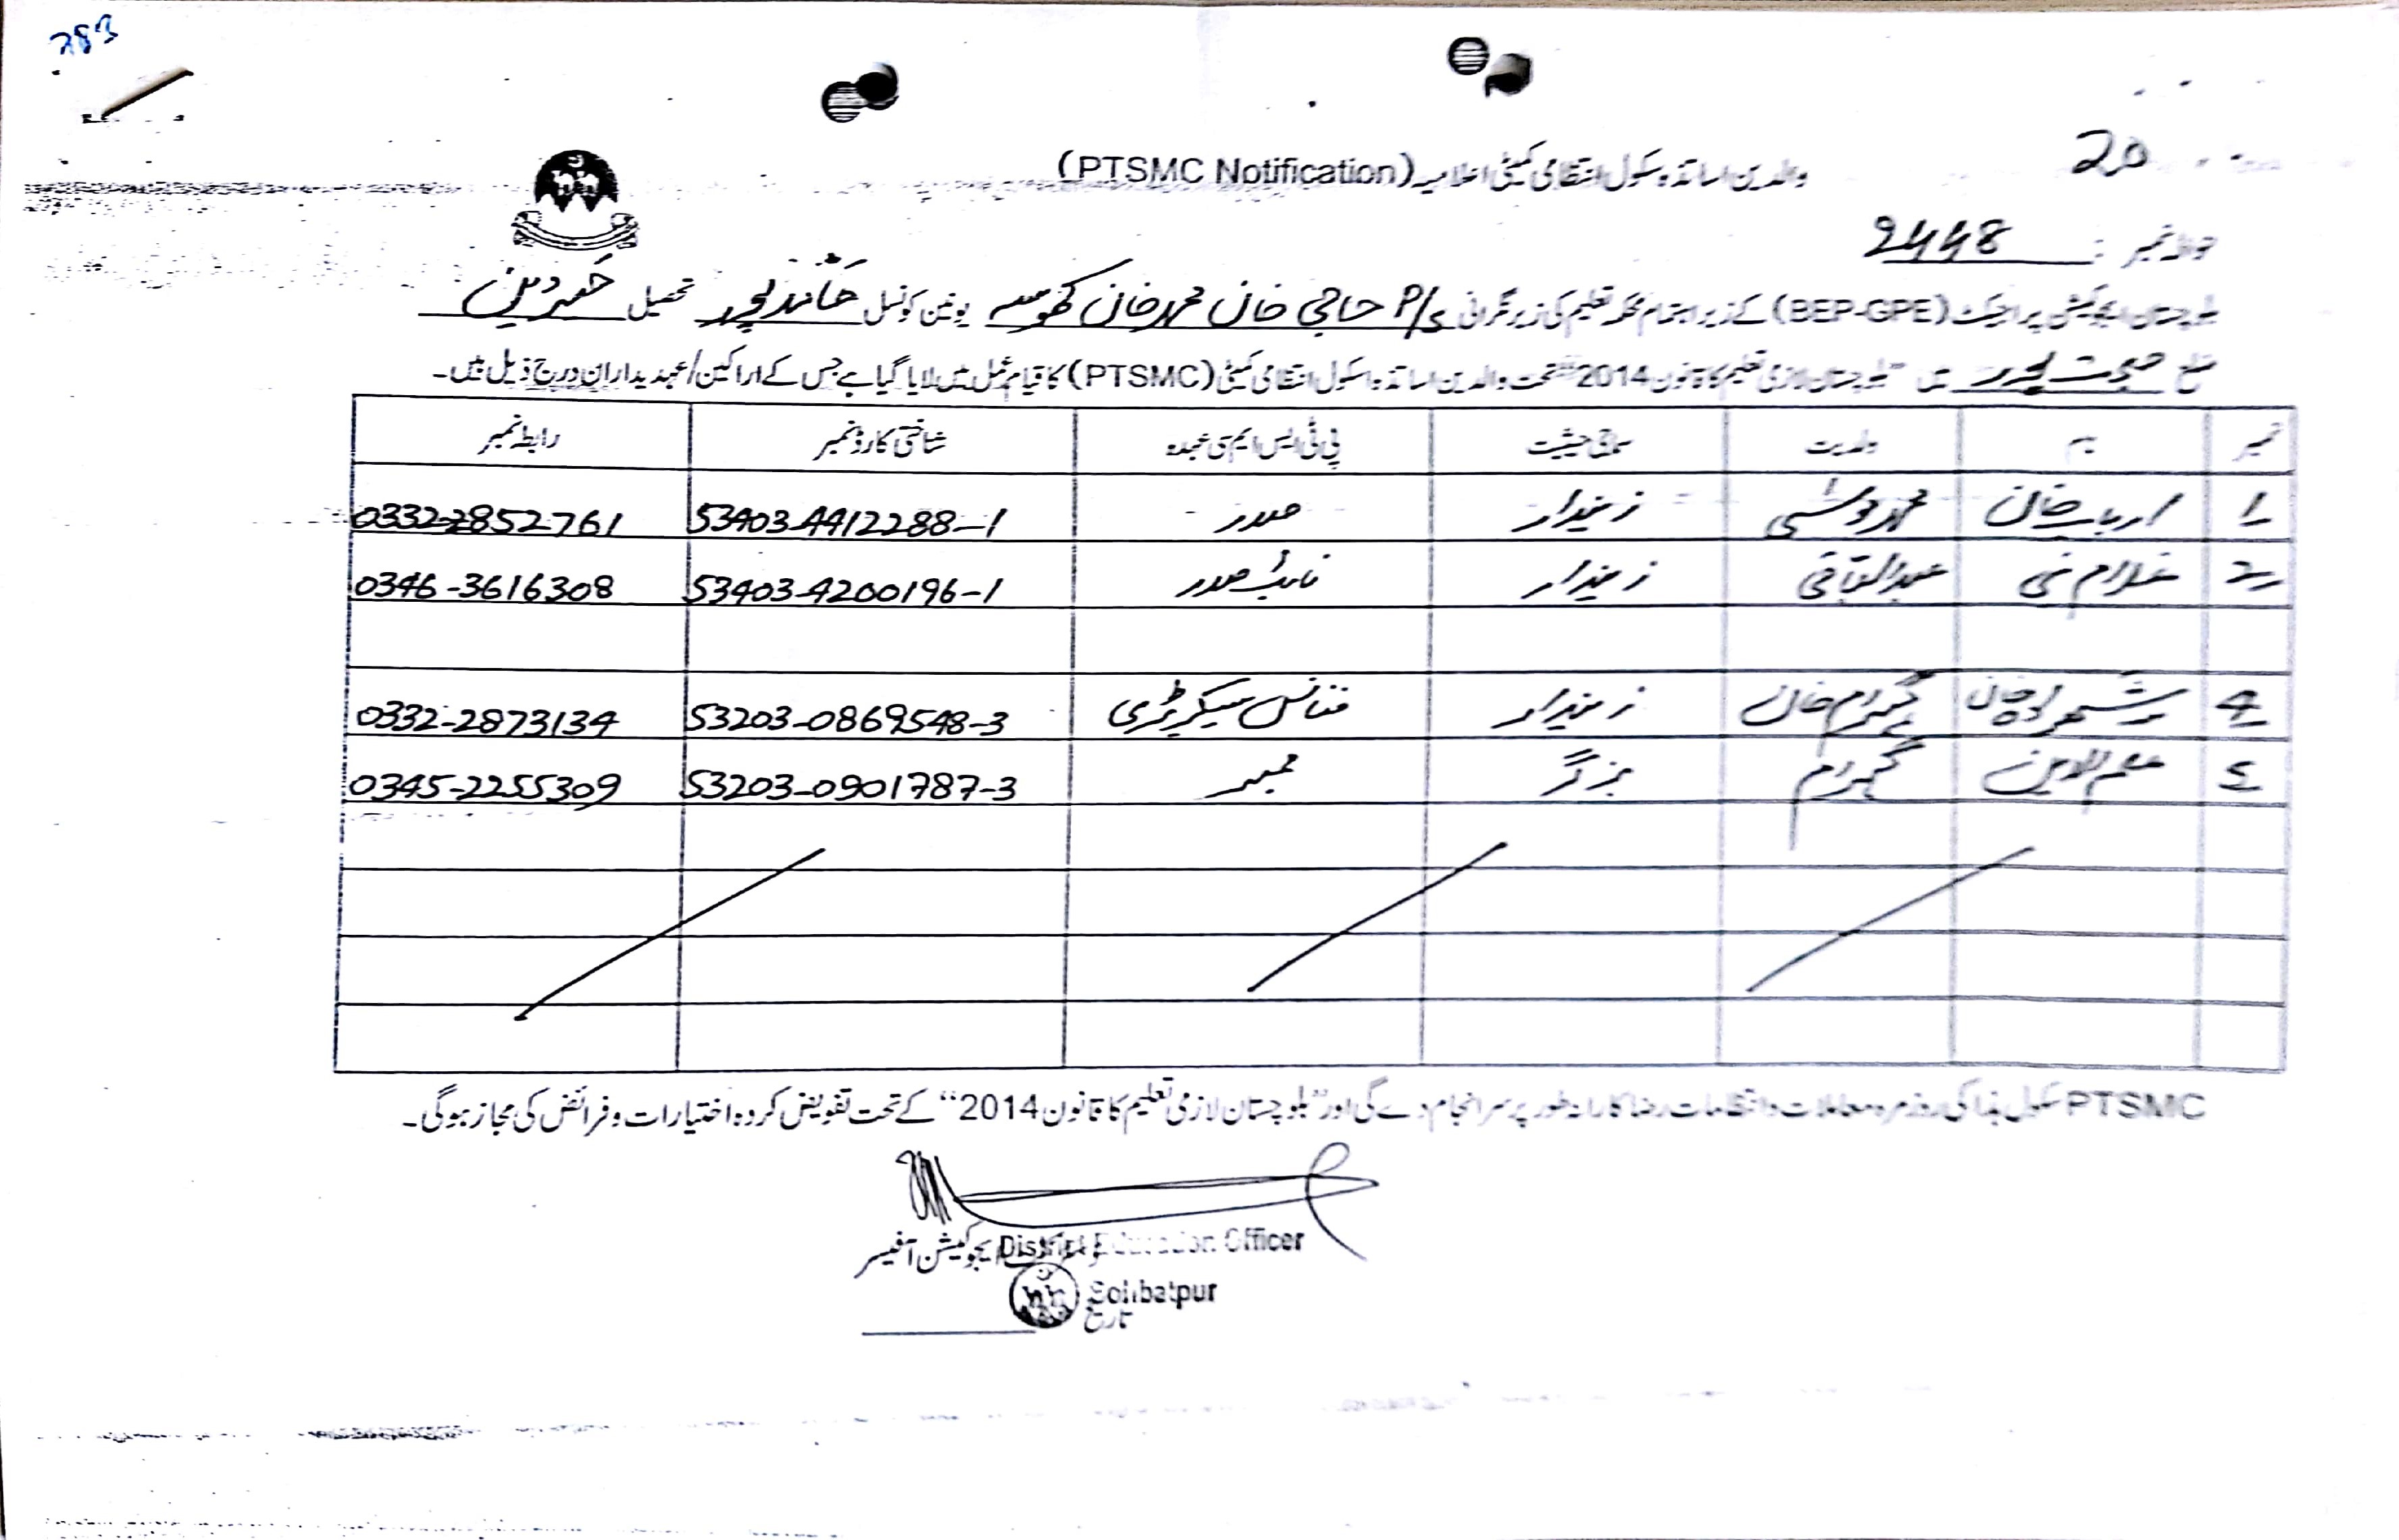 283
20
والدین اساتذہ سکول انتظامی کمیٹی اعلامیہ (PTSMC Notification)
حوالہ نمبر : 2448
بلوچستان ایجوکیشن پراجیکٹ (BEP-GPE) کے زیر اہتمام محکمہ تعلیم کی زیر نگرانی P/S حاجی خان محمد خان کھوسہ یونین کونسل تحصیل خیردین
ضلع صحبت پور میں "بلوچستان لازمی تعلیم کا قانون 2014" تحت والدین اساتذہ اسکول انتظامی کمیٹی (PTSMC) کا قیام عمل میں لایا گیا ہے جس کے اراکین/عہدیداران درج ذیل ہیں۔
نمبر نام ولدیت سماجی حیثیت پی ٹی ایس ایم سی عہدہ شناختی کارڈ نمبر رابطہ نمبر
1 ارباب خان زمیندار صدر 53403-4412288-1 0332-2852761
2 غلام نبی عبدالباقی زمیندار نائب صدر 53403-4200196-1 0346-3616308
4 زمیندار فنانس سیکریٹری 53203-0869548-3 0332-2873134
5 علم الدین بزگر ممبر 53203-0901787-3 0345-2255309
PTSMC سکول ہذا کی روزمرہ معاملات و انتظامات رضاکارانہ طور پر سرانجام دے گی اور "بلوچستان لازمی تعلیم کا قانون 2014" کے تحت تفویض کردہ اختیارات و فرائض کی مجاز ہوگی۔
ایجوکیشن آفیسر
District Education Officer
Sohbatpur
تاریخ